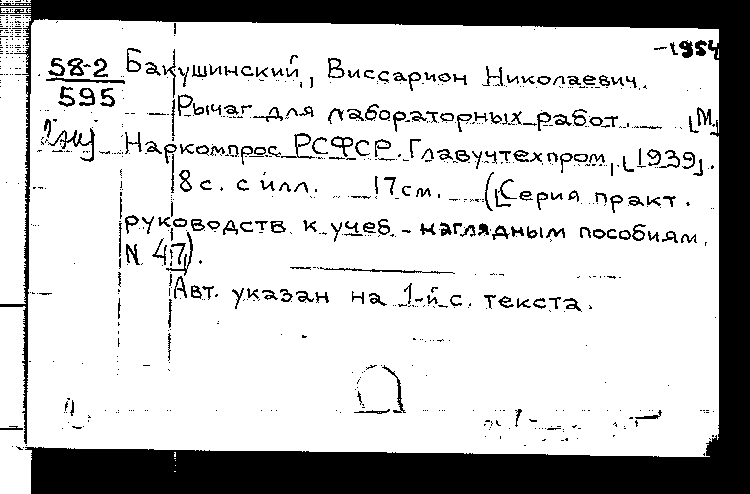 -1954
58-2
595
Бакушинский, Виссарион Николаевич.
Рычаг для лабораторных работ. [М]
2 экз
Наркомпрос РСФСР. Главучтехпром, [1939].
8 с. с илл. 17 см. ([Серия практ.
руководств к учеб-наглядным пособиям.
N 47]).
Авт. указан на 1-й с. текста.